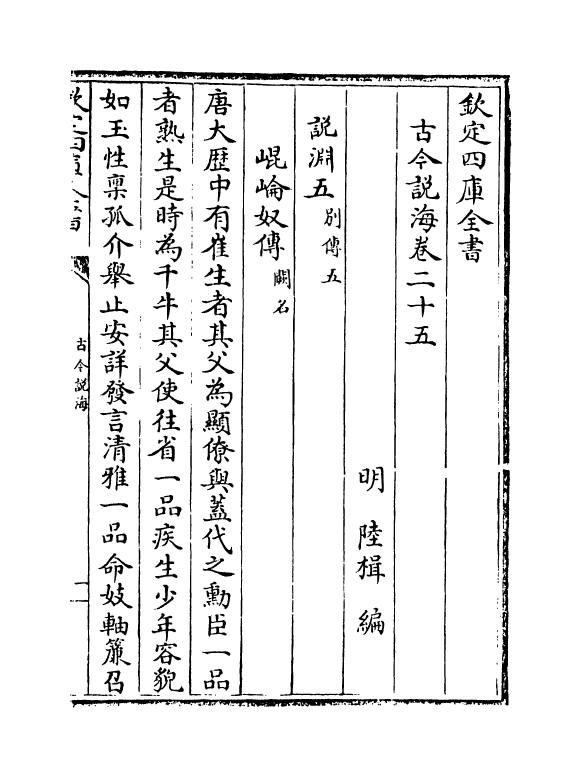 欽定四庫全書
古今説海卷二十五
明 陸楫 編
説淵五 别傳五
崐崘奴傳 闕名
唐大歷中有崔生者其父為顯僚與蓋代之勳臣一品
者熟生是時為千牛其父使往省一品疾生少年容貌
如玉性稟孤介舉止安詳發言清雅一品命妓軸簾召
古今説海